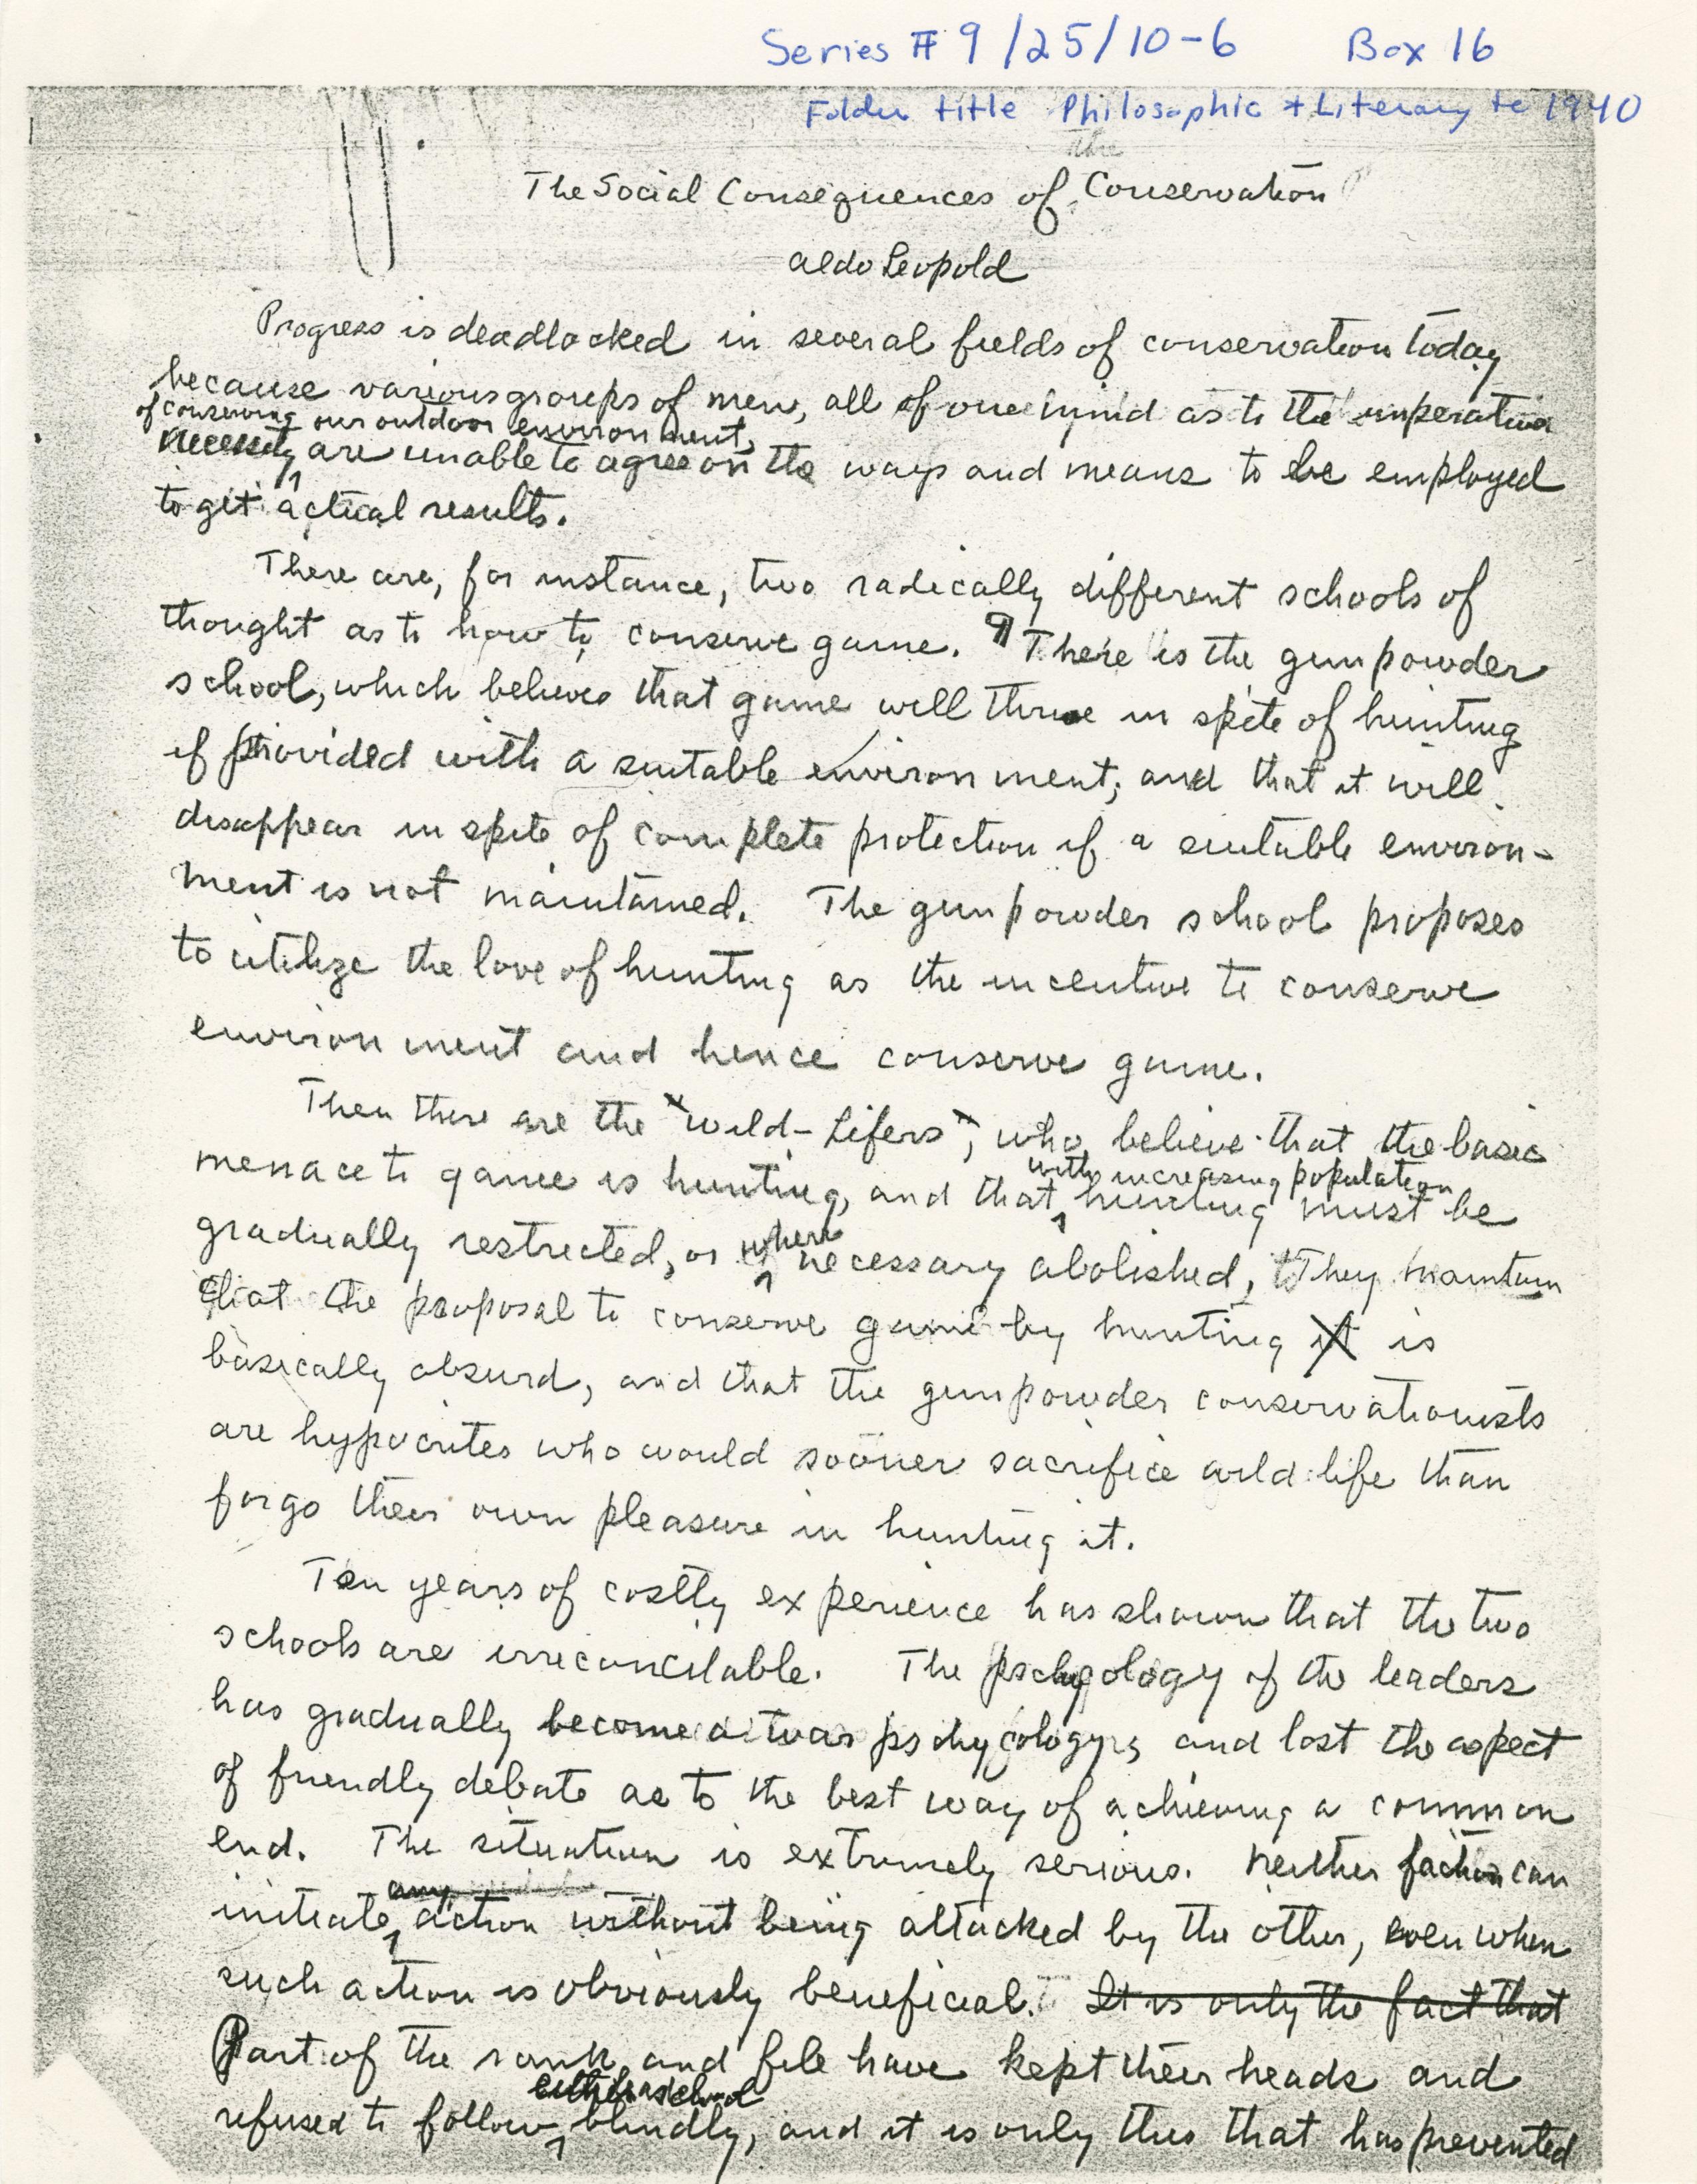 Series # 9/25/10-6 Box 16
Folder title Philosophic + Literary to 1940
the
The Social Consequences of Conservation
Aldo Leopold
Progress is deadlocked in several fields of conservation today
because various groups of men, all of one mind as to the imperative
of conserving our outdoor environment,
necessity are unable to agree on the ways and means to be employed
to get actual results.
There are, for instance, two radically different schools of
thought as to how to conserve game. ¶ There is the gunpowder
school, which believes that game will thrive in spite of hunting
if provided with a suitable environment; and that it will
disappear in spite of complete protection if a suitable environ-
ment is not maintained. The gunpowder school proposes
to utilize the love of hunting as the incentive to conserve
environment and hence conserve game.
Then there are the "wild-lifers", who believe that the basic
menace to game is hunting, and that hunting must be
with increasing population
gradually restricted, or where necessary abolished, They maintain
that the proposal to conserve game by hunting it is
basically absurd, and that the gunpowder conservationists
are hypocrites who would sooner sacrifice wild life than
forgo their own pleasure in hunting it.
Ten years of costly experience has shown that the two
schools are irreconcilable. The pschycology of the leaders
has gradually become a war pschycology, and lost the aspect
of friendly debate as to the best way of achieving a common
end. The situation is extremely serious. Neither faction can
any
initiate action without being attacked by the other, even when
such action is obviously beneficial. It is only the fact that
Part of the rank and file have kept their heads and
either school
refused to follow blindly, and it is only this that has prevented